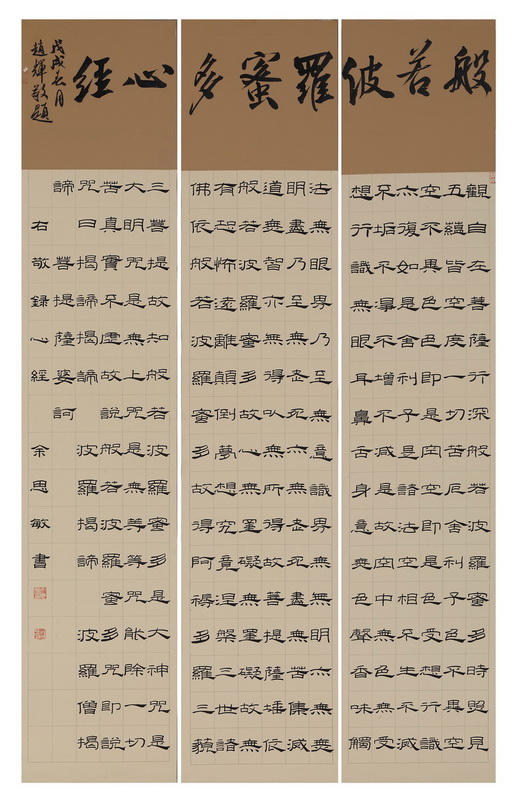 般若波羅蜜多心經
戊戌年月
趙輝敬題
觀自在菩薩行深般若波羅蜜多時照見
五蘊皆空度一切苦厄舍利子色不異空
空不異色色即是空空即是色受想行識
亦復如是舍利子是諸法空相不生不滅
不垢不淨不增不減是故空中無色無受
想行識無眼耳鼻舌身意無色聲香味觸
法無眼界乃至無意識界無無明亦無無
明盡乃至無老死亦無老死盡無苦集滅
道無智亦無得以無所得故菩提薩埵依
般若波羅蜜多故心無罣礙無罣礙故無
有恐怖遠離顛倒夢想究竟涅槃三世諸
佛依般若波羅蜜多故得阿耨多羅三藐
三菩提故知般若波羅蜜多是大神咒是
大明咒是無上咒是無等等咒能除一切
苦真實不虛故說般若波羅蜜多咒即說
咒曰揭諦揭諦 波羅揭諦 波羅僧揭
諦 菩提薩婆訶
右敬錄心經 余思敏書